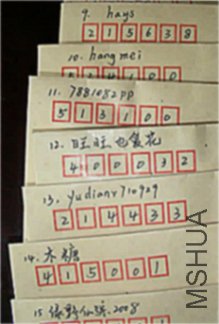 9. hays
215638
10. hangmei
11. 7881082pp
513100
12. 旺旺也爱花
400032
13. yudianr710929
214433
14. 木糖
415001
15 绿野仙踪.2008
MSHUA